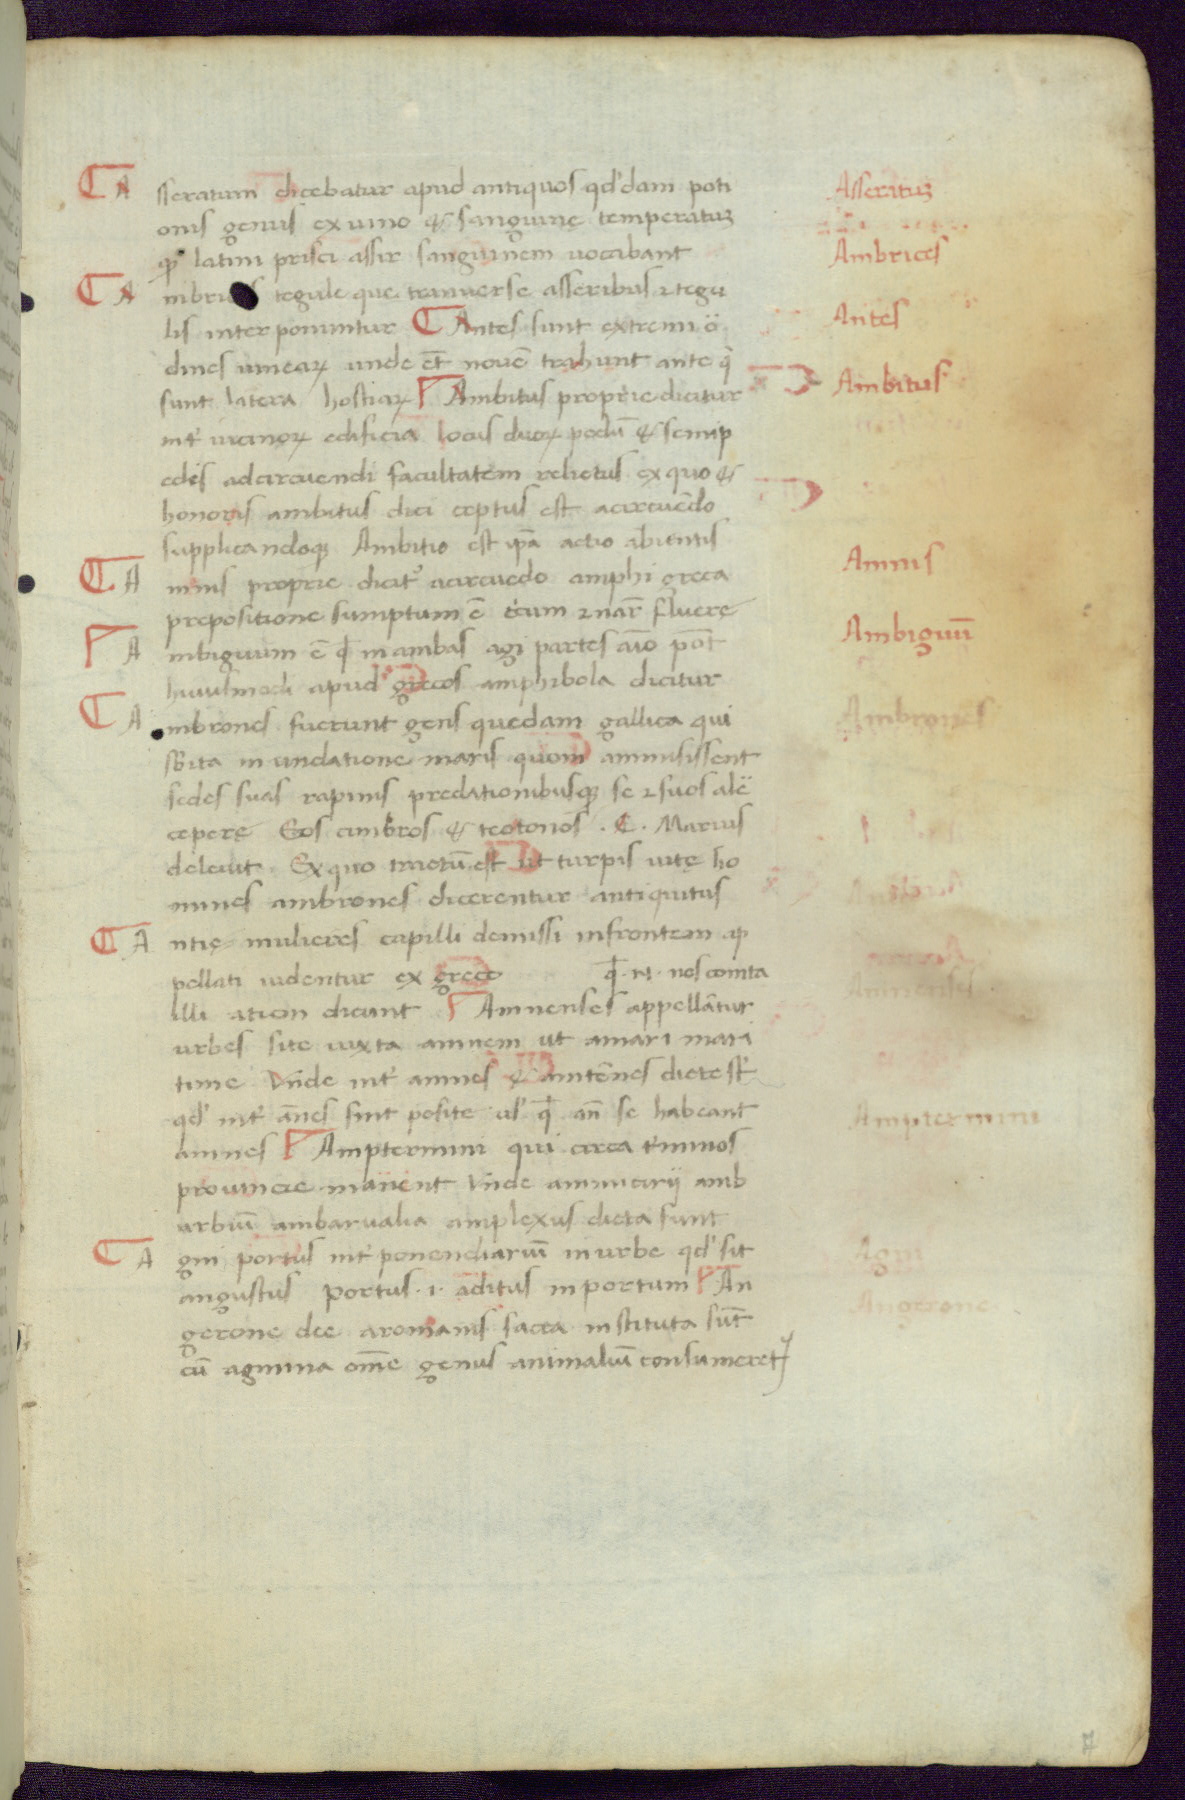 Asseratum dicebatur apud antiquos qd'dam poti
onis genus ex uino & sanguine temperatuʒ
latini prisci assir sanguinem uocabant
Ambrices tegule que tranuerse asseribus ⁊ tegu
lis interponuntur Antes sunt extremi ō
dines uinearꝝ unde et̄ nomē trahunt ante q̄
sunt latera hostiarꝝ Ambitus proprie dicitur
int' uicinorꝝ edificia locus duorꝝ pedū & semip
edis ad circuendi facultatem relictus ex quo &
honoris ambitus dici ceptus est a circuēdo
supplicandoqꝫ Ambitio est ip̄a actio abientis
Amnis proprie dicit' a circuēdo amphi greca
prepositione sumptum ē circum ⁊ nar̄ fluere
Ambiguum ē q̄ in ambas agi partes aīo pōt
huiusmodi apud grecos amphibola dicitur
Ambrones fuerunt gens quedam gallica qui
sb̄ita in undatione maris quom ammisissent
sedes suas rapinis predationibusqꝫ se ⁊ suos alē
cepere Eos cimbros & teotonos . C . Marius
deleuit Ex quo tractū est ut turpis uitę ho
mines ambrones dicerentur antiquitus
Antię mulieres capilli demissi in frontem ap
pellati uidentur ex greco q̄ . n . nos cointa
illi ation dicunt Amnenses appellāntur
urbes site iuxta amnem ut a mari mari
time Vnde int' amnes & amtēnes dicte st'
qd' int' ānes sint posite ul' q̄ an̄ se habeant
amnes Amptermini qui circa t'minos
prouincie manent Vnde ambarbiū ambarualia amplexus dicta sunt
Agni portus int' ponendiariū in urbe qd' sit
angustus portus . i . aditus in portum An
gerone dee a romanis sacra instituta sūt
cū agnina om̄e genus animaliū consumeret
Asserituʒ
Ambrices
Antes
Ambitus
Amnis
Ambiguū
Ambrones
Amnenses
Amptermini
Agni
Angerone